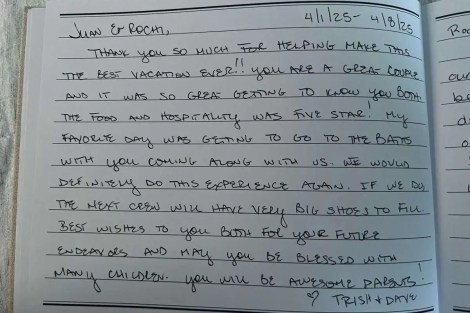 JUAN & ROCHI,
4/1/25 - 4/8/25
THANK YOU SO MUCH FOR HELPING MAKE THIS
THE BEST VACATION EVER!! YOU ARE A GREAT COUPLE
AND IT WAS SO GREAT GETTING TO KNOW YOU BOTH.
THE FOOD AND HOSPITALITY WAS FIVE STAR! MY
FAVORITE DAY WAS GETTING TO GO TO THE BATHS
WITH YOU COMING ALONG WITH US. WE WOULD
DEFINITELY DO THIS EXPERIENCE AGAIN. IF WE DO,
THE NEXT CREW WILL HAVE VERY BIG SHOES TO FILL.
BEST WISHES TO YOU BOTH FOR YOUR FUTURE
ENDEAVORS AND MAY YOU BE BLESSED WITH
MANY CHILDREN. YOU WILL BE AWESOME PARENTS!
♡ TRISH & DAVE